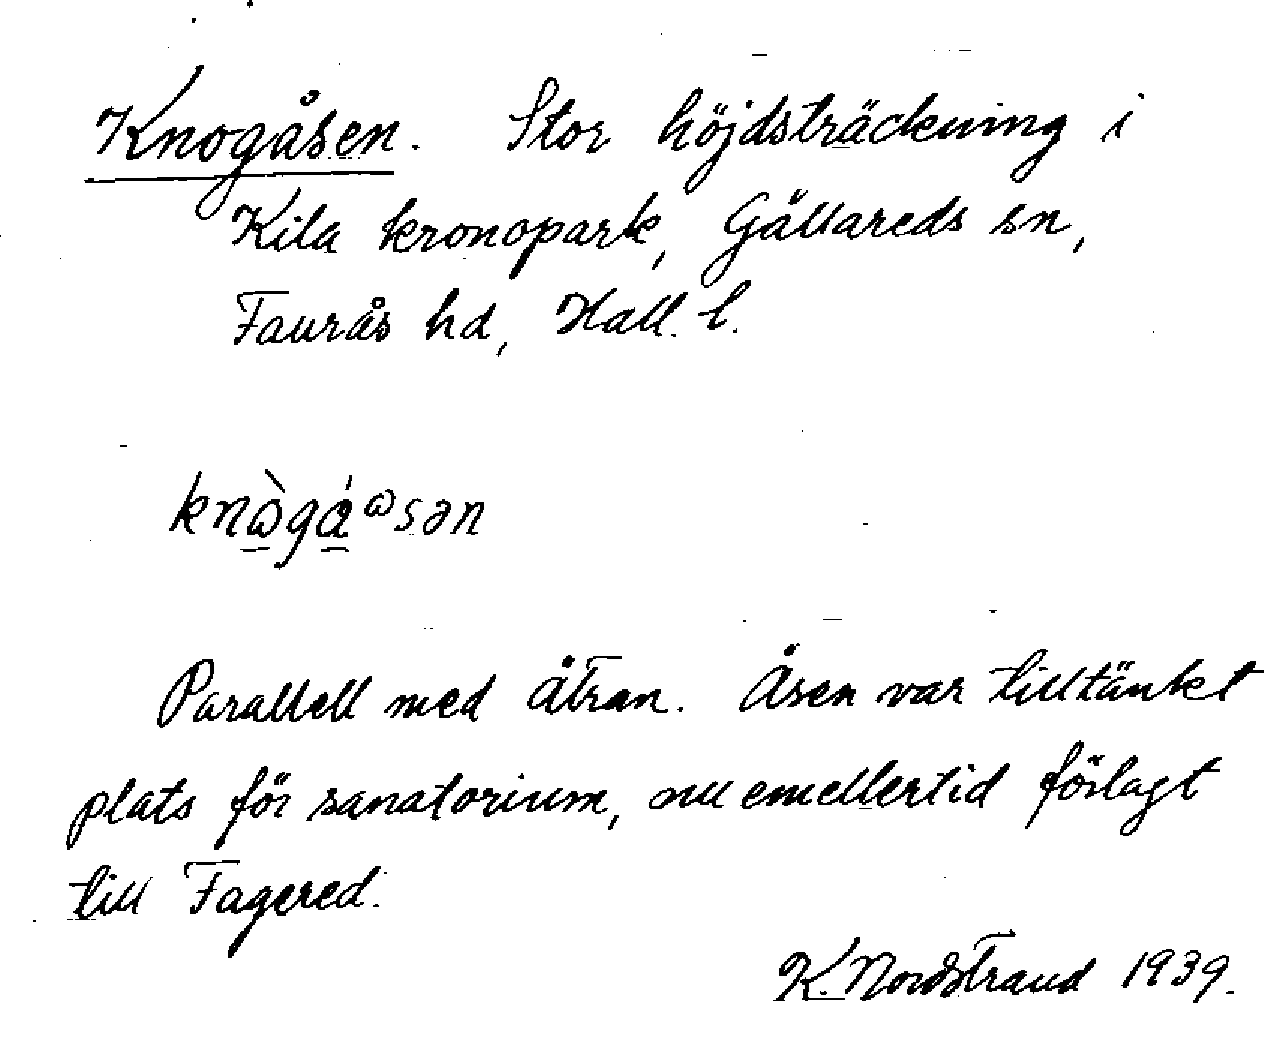 Knogåsen. Stor höjdsträckning i
Kila kronopark, Gällareds sn,
Faurås hd, Hall. l.
knὼ̱gά̱ωsən
Parallell med Ätran. Åsen var tilltänkt
plats för sanatorium, nu emellertid förlagt
till Fagered.
K. Nordstrand 1939.